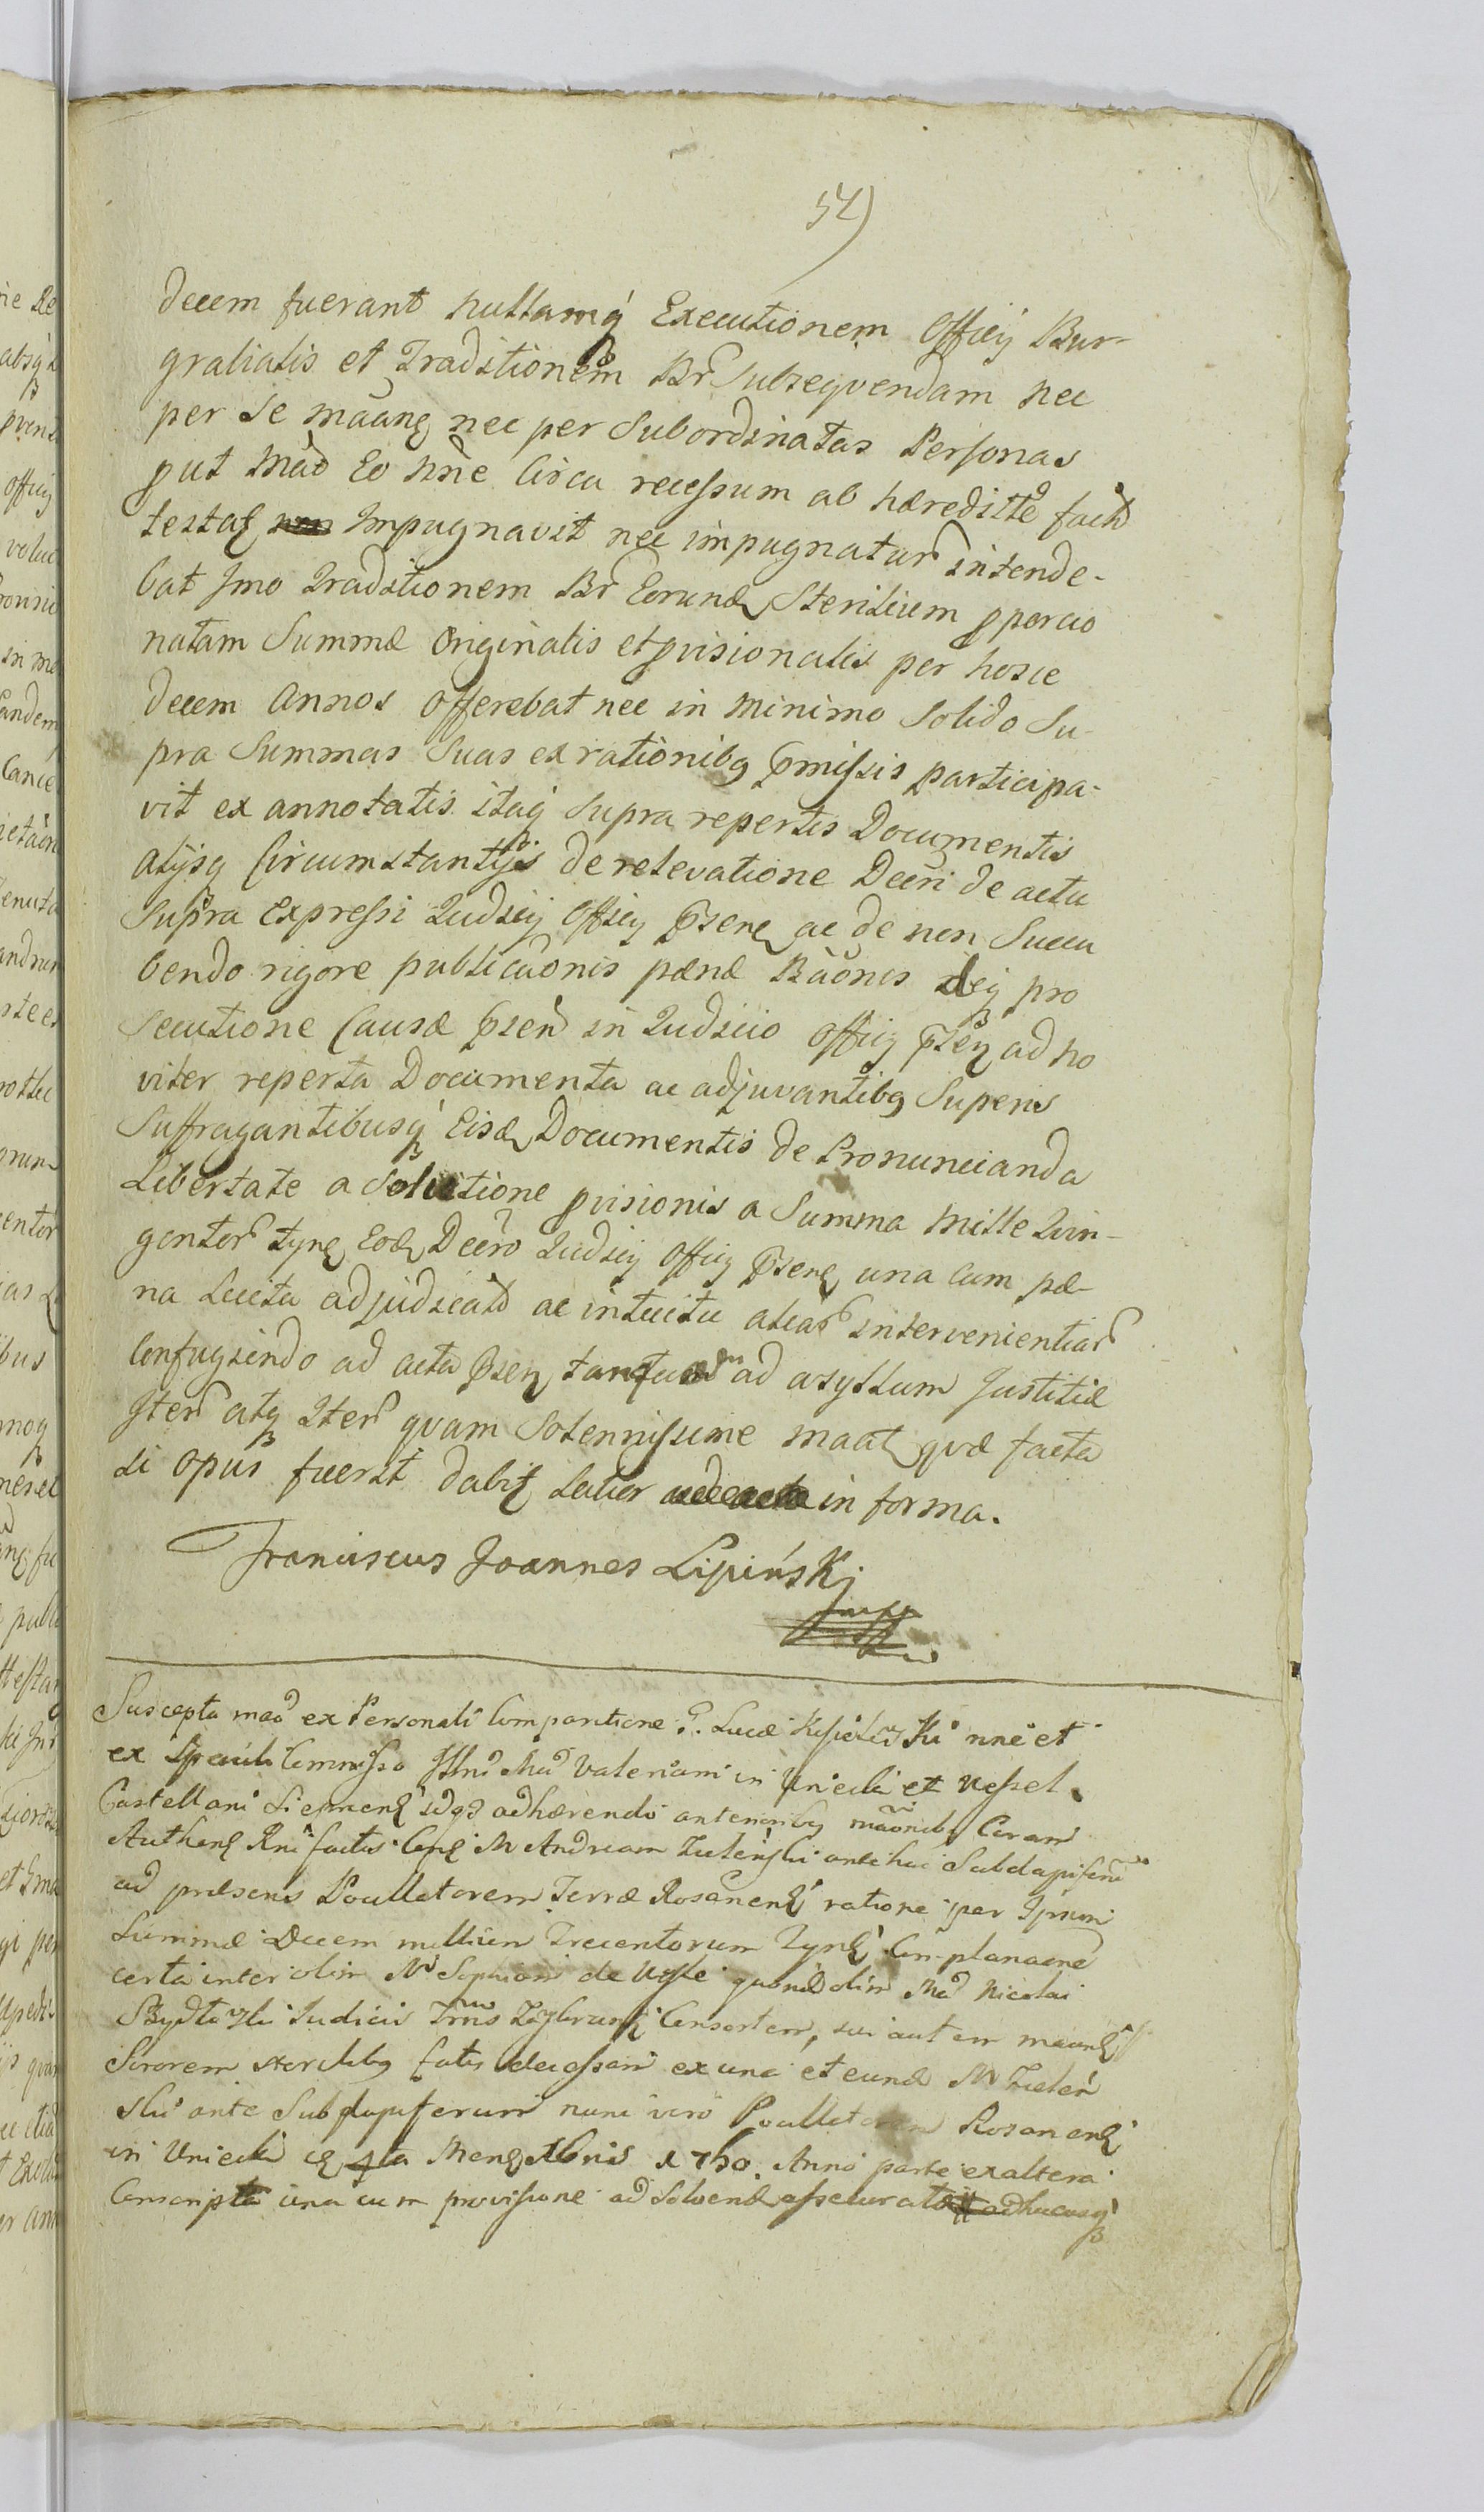 54)
decem fuerant nullamq́ Executionem Officij Bur-
grabialis et Traditionem Br̃ Subseqvendam nec
per se mãanę nec per Subordinatas Personas
put Mãd Eo nñe Circa recessum ab hæreditte fact
testatę Impugnavit nec impugnatur intende-
bat Imo Traditionem Br̃ Eorund Sterilium pporcio
natam Summæ Originalis et pvisionalis per hosce
decem Annos Offerebat nec in minimo solido Su-
pra Summas Suas ex rationibg pmissis participa-
vit ex annotatis itaq́ Supra repertis Documentis
alijsq Circumstantijs de relevatione Decri de actu
Supra Expressi Judicij Officij pseng ac de non Succu
bendo rigore publicaonis pænæ Bãonis pro
secutione Causæ psen in Judicio Officij psen ad no
viter reperta Documenta ac adjuvantibg Superis
Suffragantibusq́ Eisd Documentis de Pronuncianda
Libertate a Solutione pvisionis a Summa Mille Qvin-
gentor tynę Eod Decro Judicij Officij pseng una cum pæ-
na Lucita adjudicat ac intuitu aliar intervenientiar
Confugiendo ad acta psen tanquam ad asyllum Justitiæ
Iter atq Iter qvam Solennissime maat qvæ facta
si opus fuerit dabit latior in forma.
Franciscus Joannes Lipińskj
Suscepta mad ex Personali Comparitione nñe et
ex Commisso Illũ Mad Valeriani in Uniecki et Uessel
Castellani Siepmenę adhærendo anterioribg mãonibg Coram
Authenę Rni factis Conę M Andream Zieleński antehac Subdapiferũ
ad præsens Pocillatorem Terræ Rosanenę ratione per Ipsum
Summæ Decem millium Trecentorum Tynę Complanaone
certa inter olim de Ussle quond olim Mad Nicolai
Judicis Trũs Consortem, sui autem maanę
Sororem sterilibg fatis decessam ex una et eund M Zieleń
ski ante Subdapiferum nunc vero Pocillatorem Rosanenę
in Uniecki 4ta Menę Xbris 1750. Anno parte ex altera
Conscripta una cum provisione ad Solvend assecurata adhucusq́